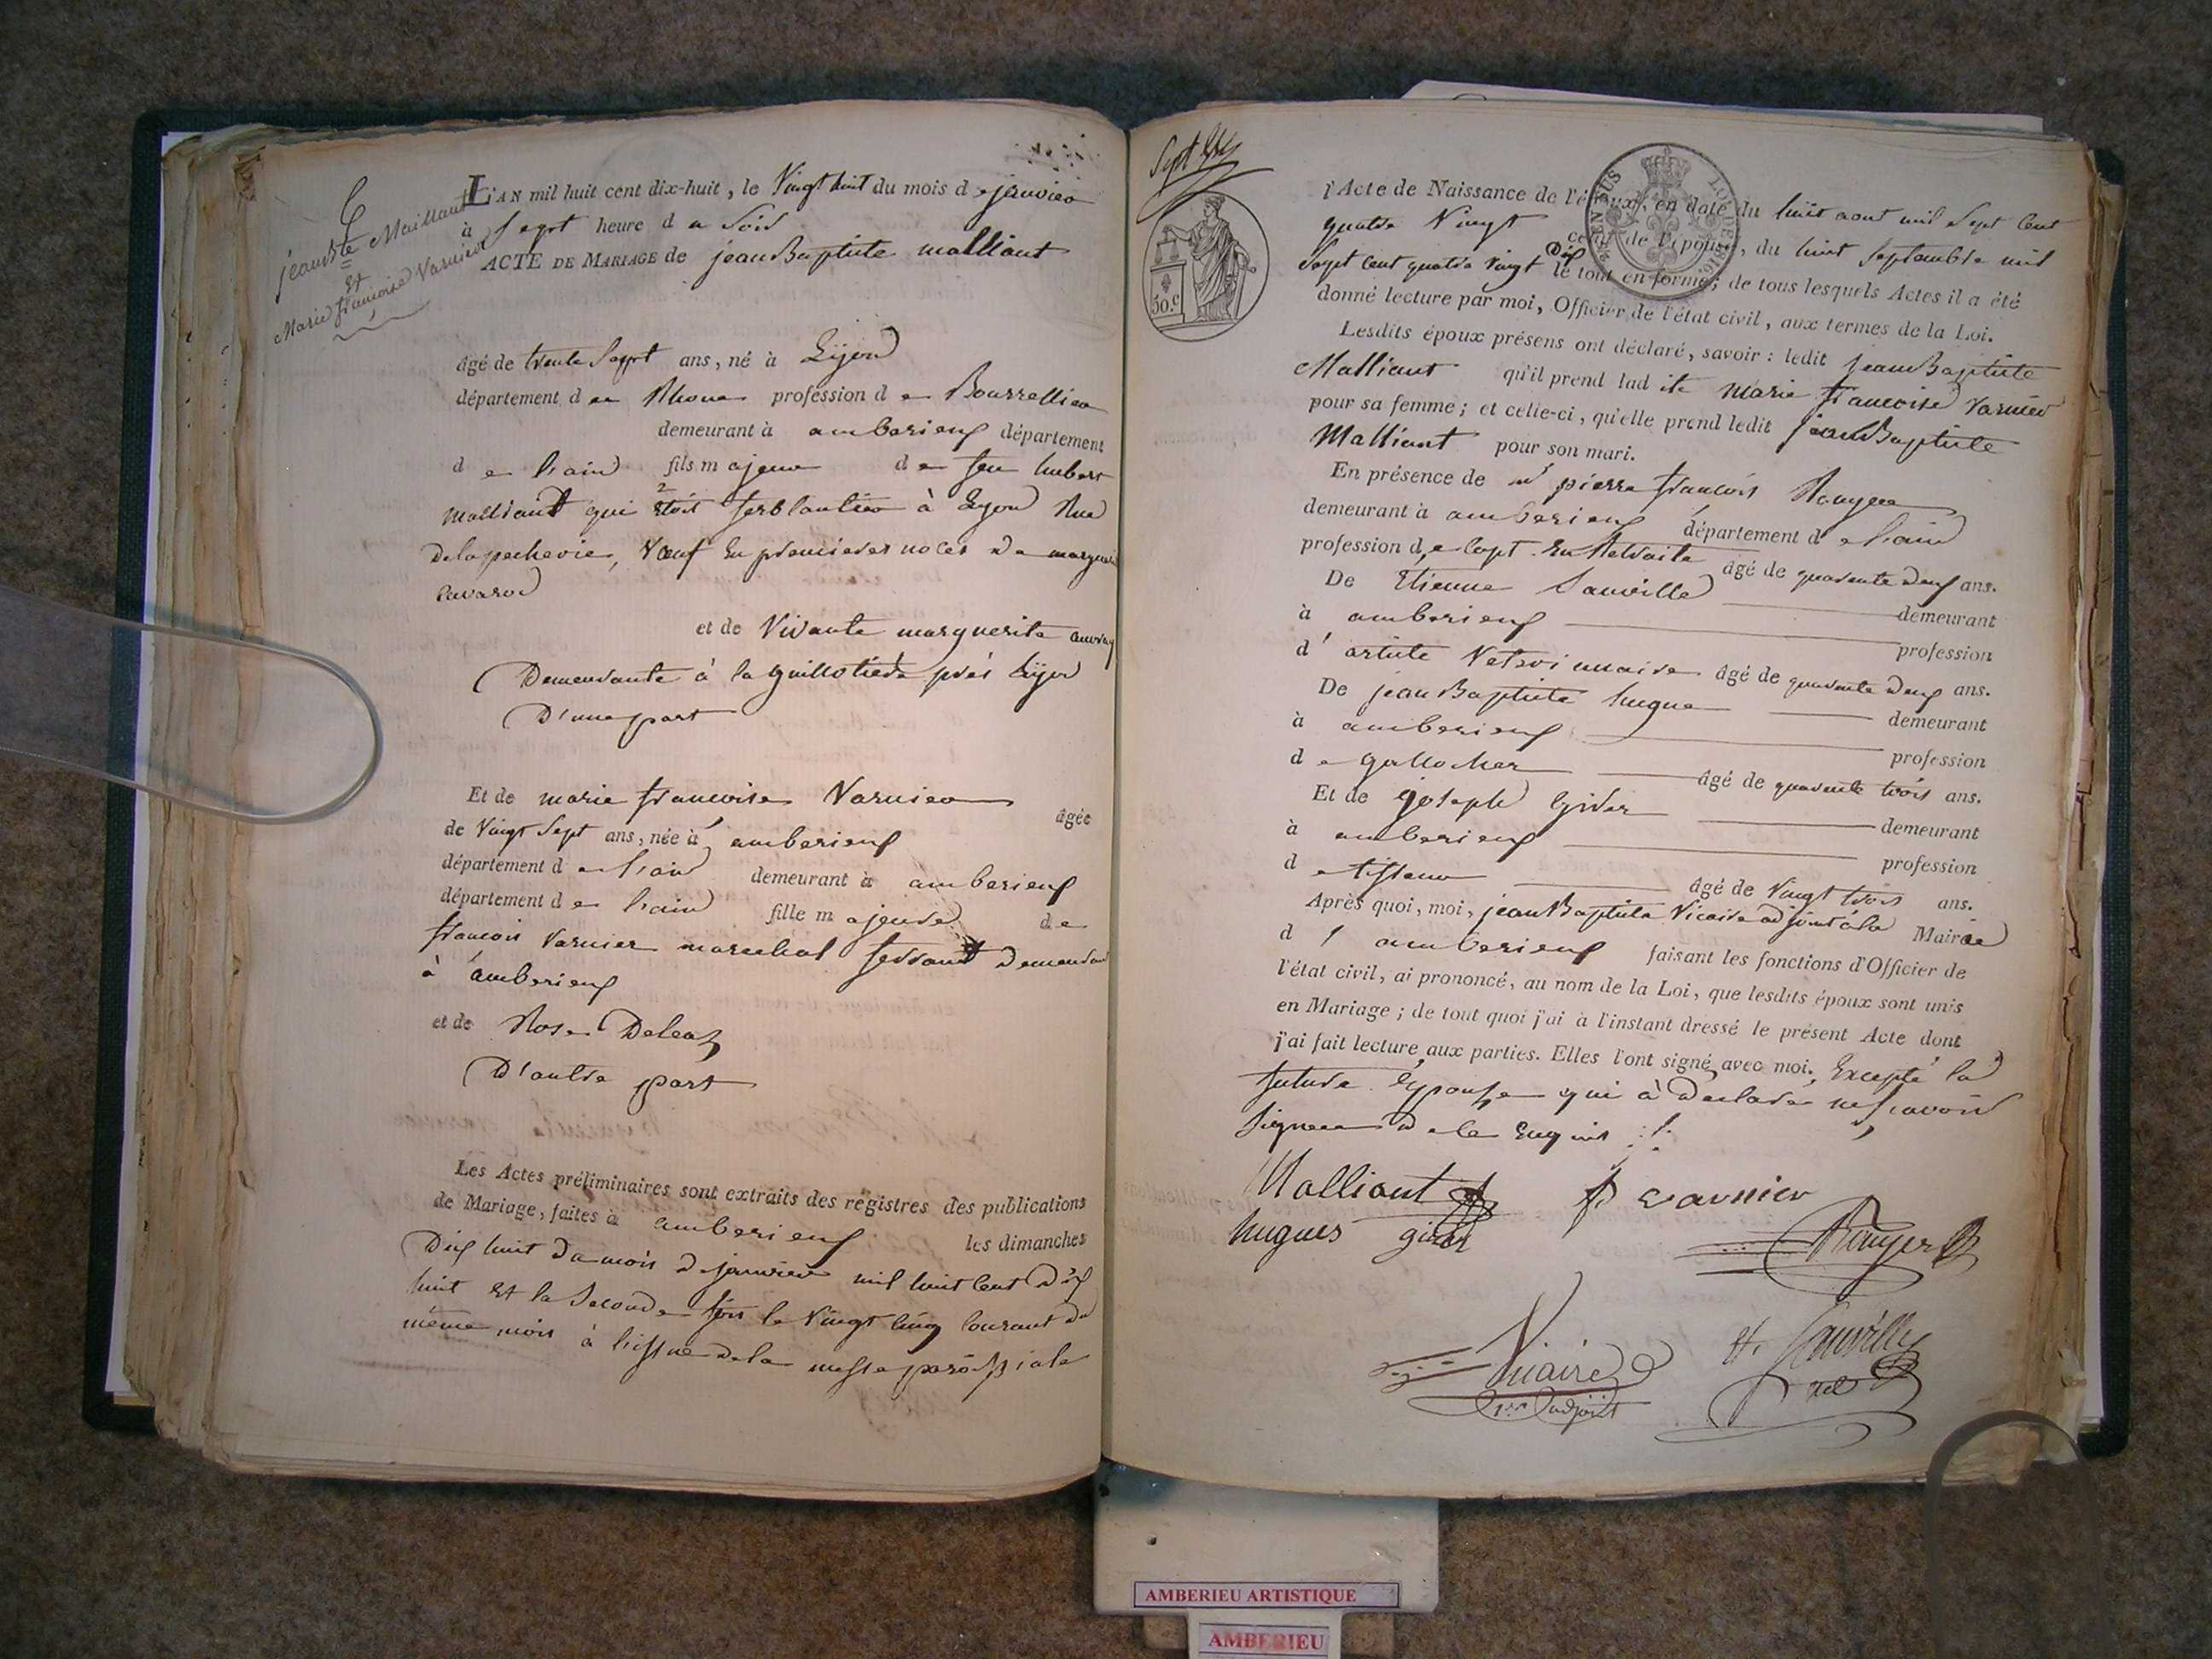 L'AN mil huit cent dix-huit, le Vingt huit du mois de janvier
à Sept heure du Soir
ACTE DE MARIAGE de jean Baptiste malliant
jean Bte Malliant
et
Marie françoise Varnier
âgé de trente Sept ans, né à Lyon
département du Rhone profession de Bourrellier
demeurant à amberieux département
de l'ain fils majeur de feu hubert
malliant qui étoit ferblantier à Lyon Rue
De la pecherie, Veuf En premieres noces de
cavarod
et de Vivante marguerite
Demeurante à la guillotiere près Lyon
D'une part
Et de marie françoise Varnier âgée
de Vingt Sept ans, née à amberieux
département de l'ain demeurant à amberieux
département de l'ain fille majeure de
françois Varnier marechal ferrant demeurant
à amberieux
et de Rose Deleaz
D'autre part
Les Actes préliminaires sont extraits des registres des publications
de Mariage, faites à amberieux les dimanches
Dix huit du mois de janvier mil huit Cent Dix
huit Et la Seconde fois le Vingt Cinq Courant du
même mois à l'issue de la messe paroissiale
AMBERIEU ARTISTIQUE
AMBERIEU
30.c
l'Acte de Naissance de l'époux, en date du huit aout mil Sept Cent
quatre Vingt celui de l'épouse, du huit Septembre mil
Sept Cent quatre Vingt Dix le tout en forme; de tous lesquels Actes il a été
donné lecture par moi, Officier de l'état civil, aux termes de la Loi.
Lesdits époux présens ont déclaré, savoir: ledit jean Baptiste
Malliant qu'il prend ladite Marie françoise Varnier
pour sa femme; et celle-ci, qu'elle prend ledit jean Baptiste
Malliant pour son mari.
En présence de Sr pierre françois Rouyer
demeurant à amberieux département de l'ain
profession de Capt. En Retraite âgé de quarente deux ans.
De Etienne Sauville demeurant
à amberieux profession
d'artiste Veterinnaire âgé de quarente deux ans.
De jean Baptiste hugue demeurant
à amberieux profession
de gallocher âgé de quarente trois ans.
Et de joseph gider demeurant
à amberieux profession
de tisseur âgé de Vingt trois ans.
Après quoi, moi, jean Baptiste Vicaire adjoint à la Mairie
d'amberieux faisant les fonctions d'Officier de
l'état civil, ai prononcé, au nom de la Loi, que lesdits époux sont unis
en Mariage; de tout quoi j'ai à l'instant dressé le présent Acte dont
j'ai fait lecture aux parties. Elles l'ont signé avec moi. Excepté la
future Epouse qui à Declaré ne sçavoir
Signer de le Enquis
Malliant f varnier
hugues gider Rouyer
Vicaire et. Sauville
1er adjoint